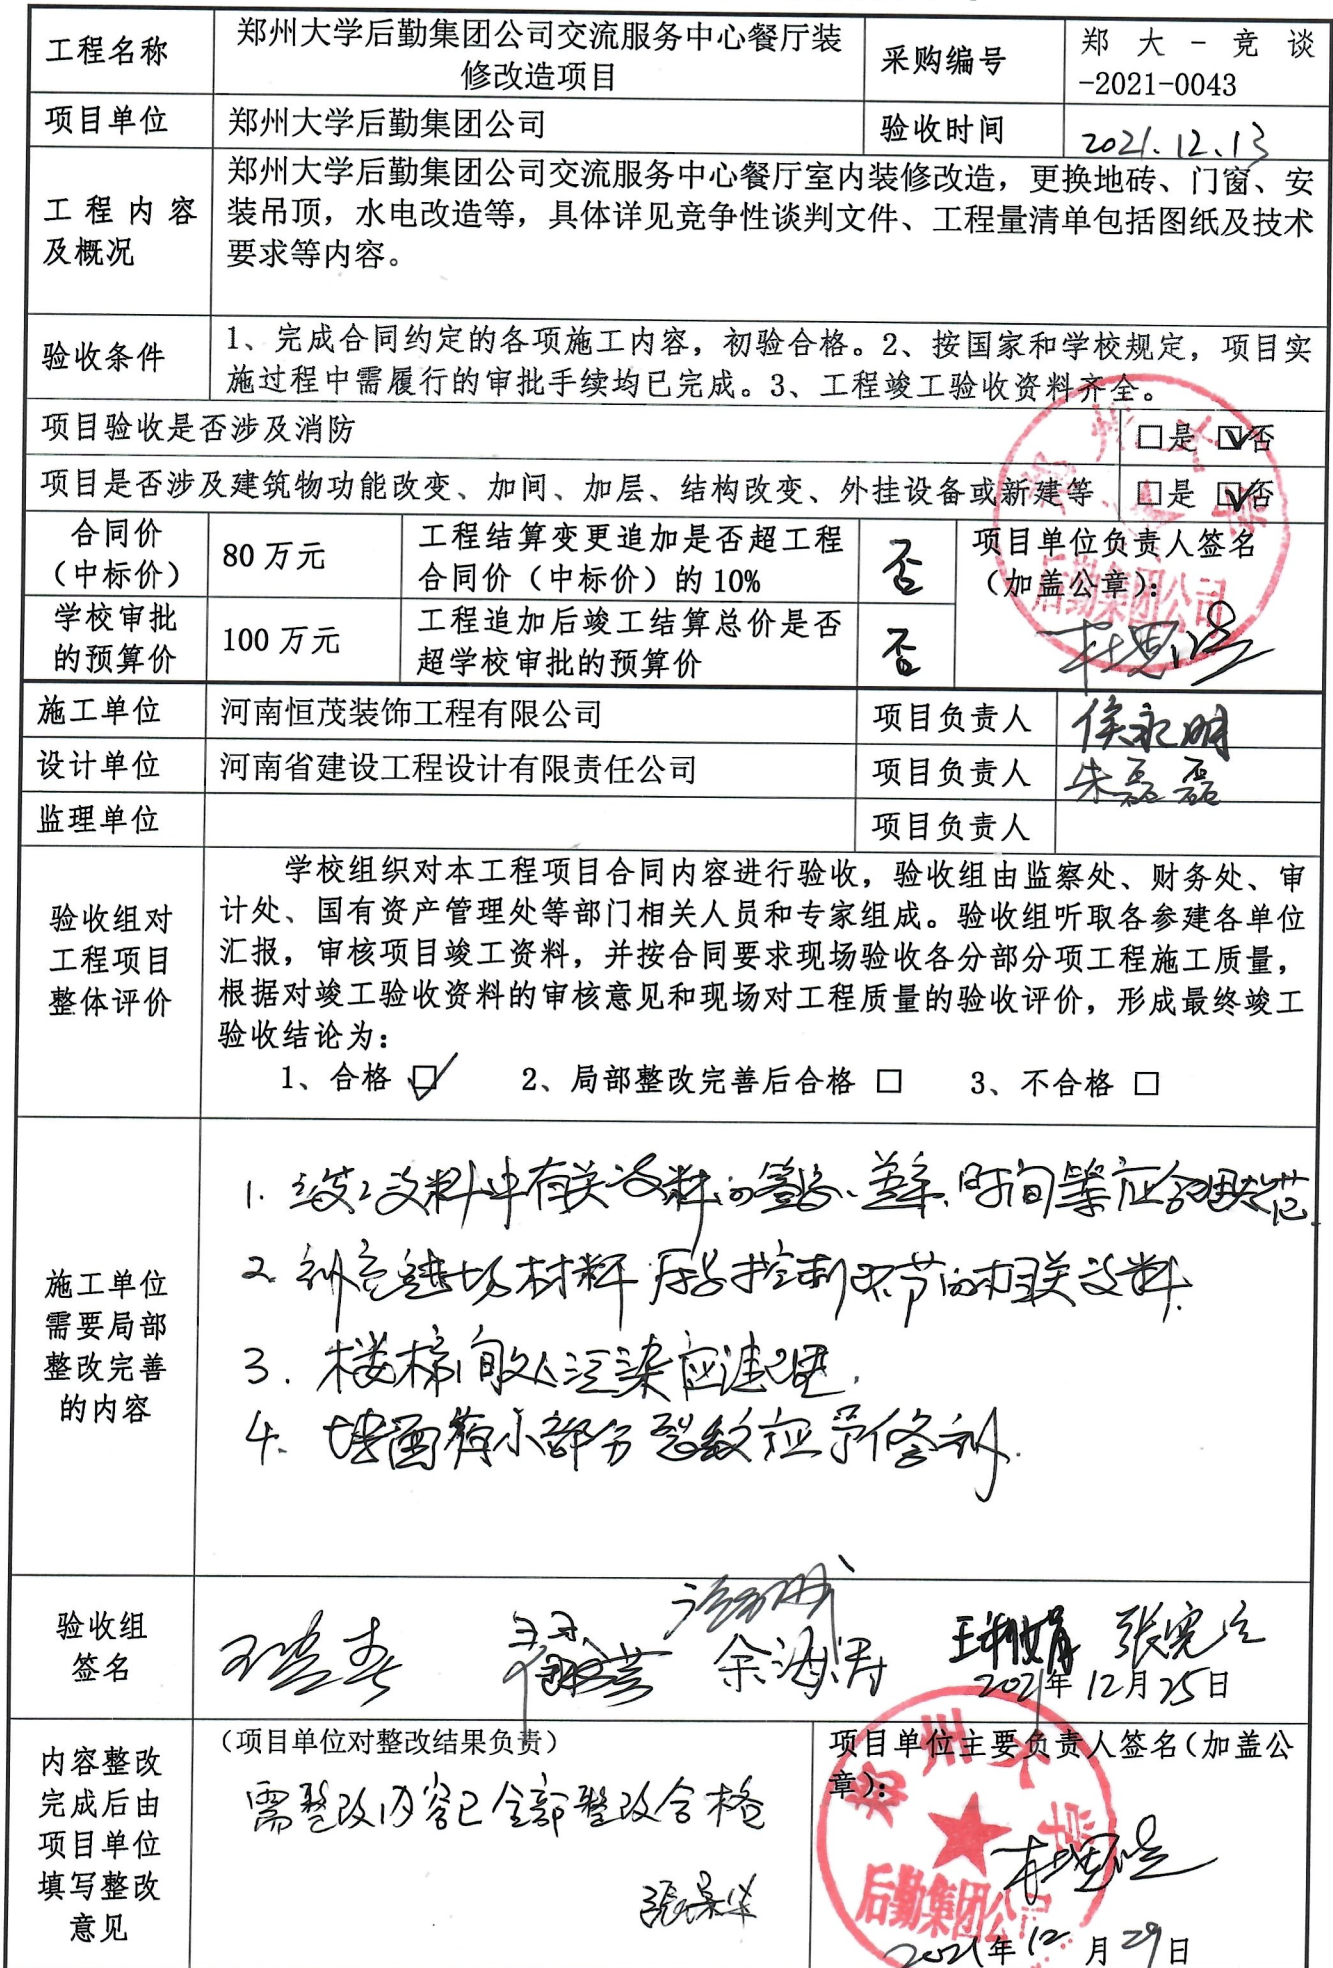 工程名称
郑州大学后勤集团公司交流服务中心餐厅装
修改造项目
采购编号
郑大-竞谈
-2021-0043
项目单位
郑州大学后勤集团公司
验收时间
2021.12.13
工程内容
及概况
郑州大学后勤集团公司交流服务中心餐厅室内装修改造，更换地砖、门窗、安
装吊顶，水电改造等，具体详见竞争性谈判文件、工程量清单包括图纸及技术
要求等内容。
验收条件
1、完成合同约定的各项施工内容，初验合格。2、按国家和学校规定，项目实
施过程中需履行的审批手续均已完成。3、工程竣工验收资料齐全。
项目验收是否涉及消防
□是 ☑否
项目是否涉及建筑物功能改变、加间、加层、结构改变、外挂设备或新建等
□是 ☑否
合同价
（中标价）
80 万元
工程结算变更追加是否超工程
合同价（中标价）的 10%
否
项目单位负责人签名
（加盖公章）：
郑州大学
后勤集团公司
学校审批
的预算价
100 万元
工程追加后竣工结算总价是否
超学校审批的预算价
否
施工单位
河南恒茂装饰工程有限公司
项目负责人
侯永明
设计单位
河南省建设工程设计有限责任公司
项目负责人
朱磊磊
监理单位
项目负责人
验收组对
工程项目
整体评价
学校组织对本工程项目合同内容进行验收，验收组由监察处、财务处、审
计处、国有资产管理处等部门相关人员和专家组成。验收组听取各参建各单位
汇报，审核项目竣工资料，并按合同要求现场验收各分部分项工程施工质量，
根据对竣工验收资料的审核意见和现场对工程质量的验收评价，形成最终竣工
验收结论为：
1、合格 ☑ 2、局部整改完善后合格 □ 3、不合格 □
施工单位
需要局部
整改完善
的内容
1. 竣工资料中有关资料的签字、盖章、时间等应合理规范
2. 补充进场材料 控制环节的相关资料.
3. 楼梯间处污染应清理.
4. 墙面有小部分裂纹应予修补.
验收组
签名
余海涛
张宪立
2021年12月25日
内容整改
完成后由
项目单位
填写整改
意见
（项目单位对整改结果负责）
需整改内容已全部整改合格
项目单位主要负责人签名（加盖公
章）：
郑州大学
后勤集团公司
2021年12月29日